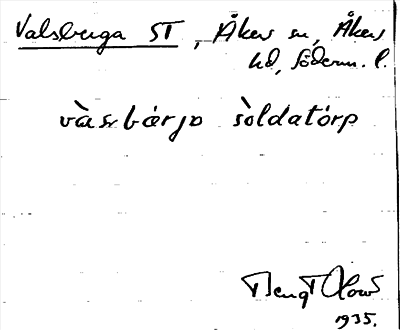 Valsberga ST, Åkers sn, Åkers
hd, Söderm. l.
vàsbárjo sòldatórp
Bengt
1935.